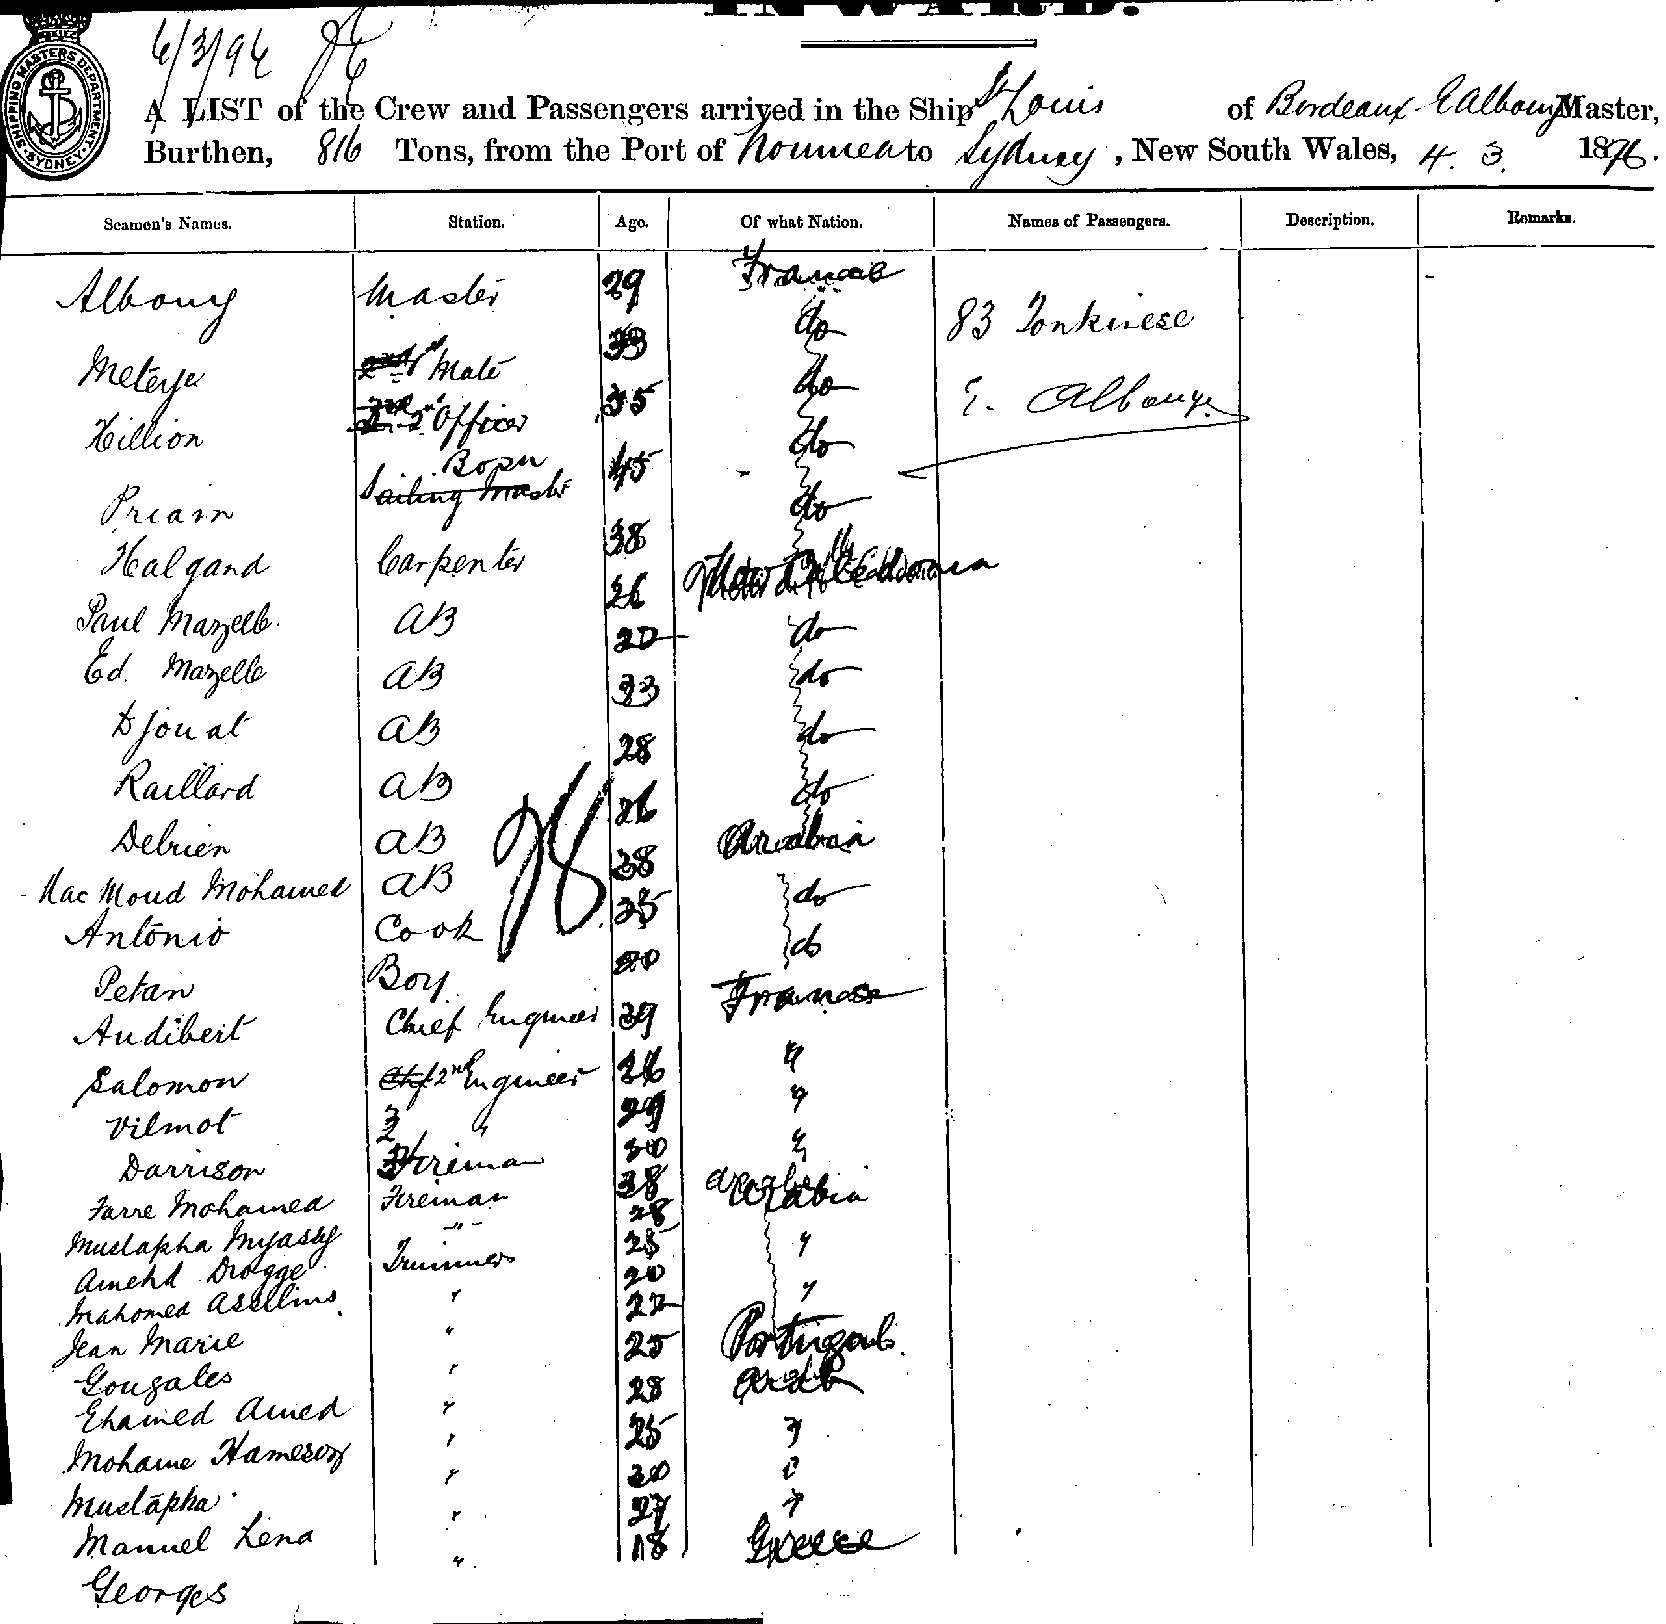 INWARD.
6/3/96
SHIPPING MASTERS DEPARTMENT SYDNEY
A LIST of the Crew and Passengers arrived in the Ship St Louis of Bordeaux E Albouy Master,
Burthen, 816 Tons, from the Port of Noumea to Sydney, New South Wales, 4. 3. 1896.
Seamen's Names. Station. Age. Of what Nation. Names of Passengers. Description. Remarks.
Albouy Master 29 France
83 Tonkinese
Meteye 1st Mate 33 do
E. Albouy
Hillion 2nd Officer 35 do
Bosn
Priam Sailing Master 45 do
Halgand Carpenter 38 do
Paul Mazelle. AB 26 New Caledonia
Ed. Mazelle AB 20 do
Djouat AB 33 do
Raillard AB 28 do
Debrien AB 26 do
Mac Moud Mohamed AB 38 Arabia
Antonio Cook 35 do
Petan Boy 20 do
Audibert Chief Engineer 39 France
Salomon 2nd Engineer 26 "
Vilmot 3 " 29 "
Darrison Fireman 30 "
Farre Mohamed Fireman 38 Arabia
Mustapha Myassy " 28
Amehd Drogge Trimmers 25 "
Mahomed Asselins " 20
Jean Marie " 22 "
Gonzales " 25 Portugal.
Ehamed Amed " 28 Arab
Mohame Hameson " 25 "
Mustapha " 30 "
Manuel Lena " 27 "
Georges " 18 Greece